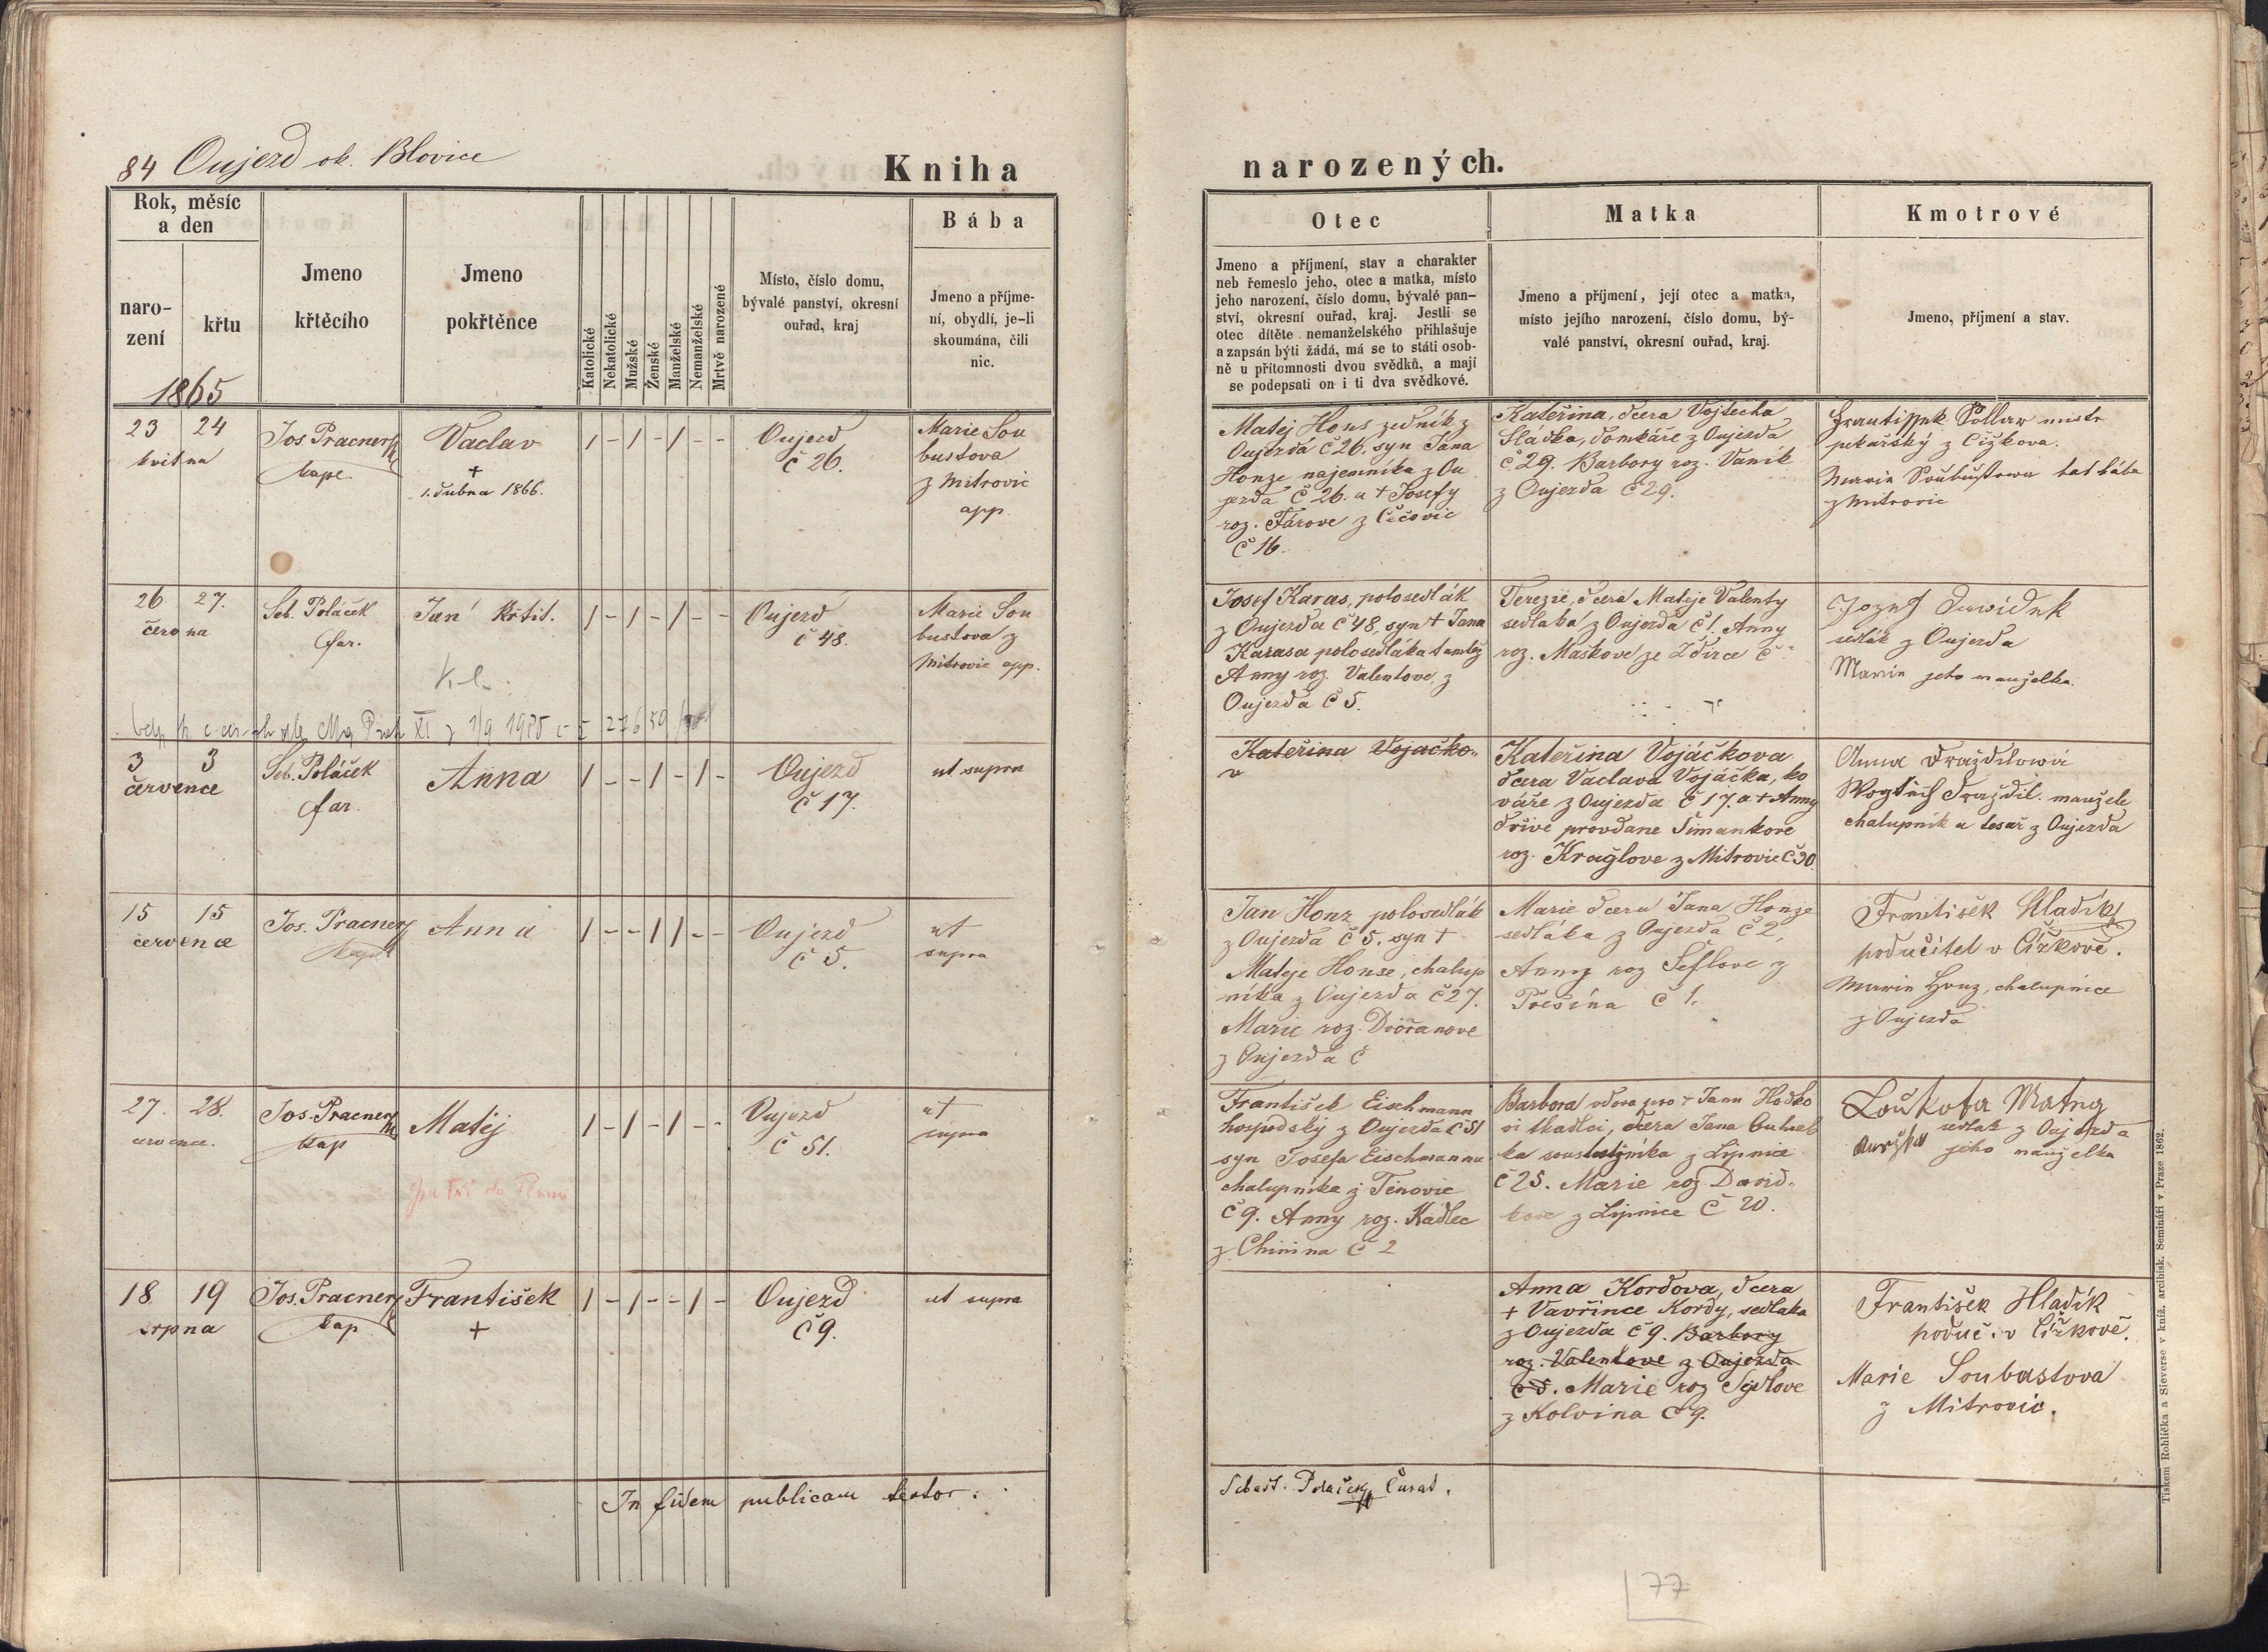 84 Oujezd ok. Blovice
Kniha
narozených.
Rok, měsíc
a den
naro-
zení
křtu
1865
Jmeno
křtěcího
Jmeno
pokřtěnce
Katolické
Nekatolické
Mužské
Ženské
Manželské
Nemanželské
Mrtvě narozené
Místo, číslo domu,
bývalé panství, okresní
ouřad, kraj
Bába
Jmeno a příjme-
ní, obydlí, je-li
skoumána, čili
nic.
Otec
Jmeno a příjmení, stav a charakter
neb řemeslo jeho, otec a matka, místo
jeho narození, číslo domu, bývalé pan-
ství, okresní ouřad, kraj. Jestli se
otec dítěte nemanželského přihlašuje
a zapsán býti žádá, má se to státi osob-
ně u přítomnosti dvou svědků, a mají
se podepsati on i ti dva svědkové.
Matka
Jmeno a příjmení, její otec a matka,
místo jejího narození, číslo domu, bý-
valé panství, okresní ouřad, kraj.
Kmotrové
Jmeno, příjmení a stav.
23 24
května
Jos Pracner
kape
Vaclav
+
1. dubna 1866.
1 - 1 - 1 - -
Oujezd
č 26.
Marie Sou
bustova
z Mitrovic
app.
Matej Hons zedník z
Oujezda č 26. syn Jana
Honze najemníka z Ou
jezda č 26. a + Josefy
roz. Fárove z Čečovic
č 16.
Kateřina, dcera Vojtecha
Sládka, domkáře z Oujezda
č 29. Barbory roz. Vaník
z Oujezda č 29.
Frantissek Pollar mistr
pekařský z Čížkova.
Maria Soubustowa bába
z Mitrovic
26 27.
června
Seb. Poláček
far.
Jan Křtit.
1 - 1 - 1 - -
Oujezd
č 48.
Marie Sou
bustova z
Mitrovic app.
Josef Karas, polosedlák
z Oujezda č 48, syn + Jana
Karasa polosedláka tamtéž
Anny roz. Valentove, z
Oujezda č 5.
Terezie, dcera Mateje Valenty
sedlaka z Oujezda č 1. Anny
roz. Maškove ze Ždirce č
Jozef Dawidek
sedlák z Oujezda
Maria jeho manželka.
3 3
července
Seb. Poláček
far.
Anna
1 - - 1 - 1 -
Oujezd
č 17.
ut supra
Kateřina Vojačko-
v
Kateřina Vojáčkova
dcera Vaclava Vojáčka, ko
váře z Oujezda č 17. a + Anny
dříve provdane Šimankove
roz. Kraglove z Mitrovic č 30.
Anna Draždilowá
Wogtěch Draždil. manžele
chalupník a tesař z Oujezda
15 15
července
Jos. Pracner
kap
Anna
1 - - 1 1 - -
Oujezd
č 5.
ut
supra
Jan Honz polosedlák
z Oujezda č 5. syn +
Mateje Honse, chalup
níka z Oujezda č 27.
Marie roz. Dvořanove
z Oujezda č
Marie dcera Jana Honze
sedláka z Oujezda č 2,
Anny roz Šeflove z
Přešína č 1.
František Hladík
podučitel v Čížkově.
Maria Honz, chalupnice
z Oujezda
27. 28.
července.
Jos. Pracner
kap
Matěj
1 - 1 - 1 - -
Oujezd
č 51.
ut
supra
František Eischmann
hospodský z Oujezda č 51
syn Josefa Eischmanna
chalupníka z Tinovic
č 9. Anny roz. Kadlec
z Chinina č 2
Barbora, vdova po + Janu Hodko
vi tkadlci, dcera Jana
ka z Lipnice
č 25. Marie roz David-
kove z Lipnice č 20.
Loukota Mateg
sedlak z Oujezda
jeho manželka
18 19
srpna
Jos. Pracner
kap
František
+
1 - 1 - - 1 -
Oujezd
č 9.
ut supra
Anna Kordova, dcera
+ Vavřince Kordy, sedlaka
z Oujezda č 9. Barbory
roz. Valentove z Oujezda
č 5. Marie roz Sejdlove
z Kolvina č 9.
František Hladík
poduč. v Čížkově.
Marie Soubustova
z Mitrovic.
In fidem publicam testor:
Sebast. Polaček Curat.
77
Tiskem Rohlíčka a Sieverse v kníž. arcibisk. Semináři v Praze 1862.